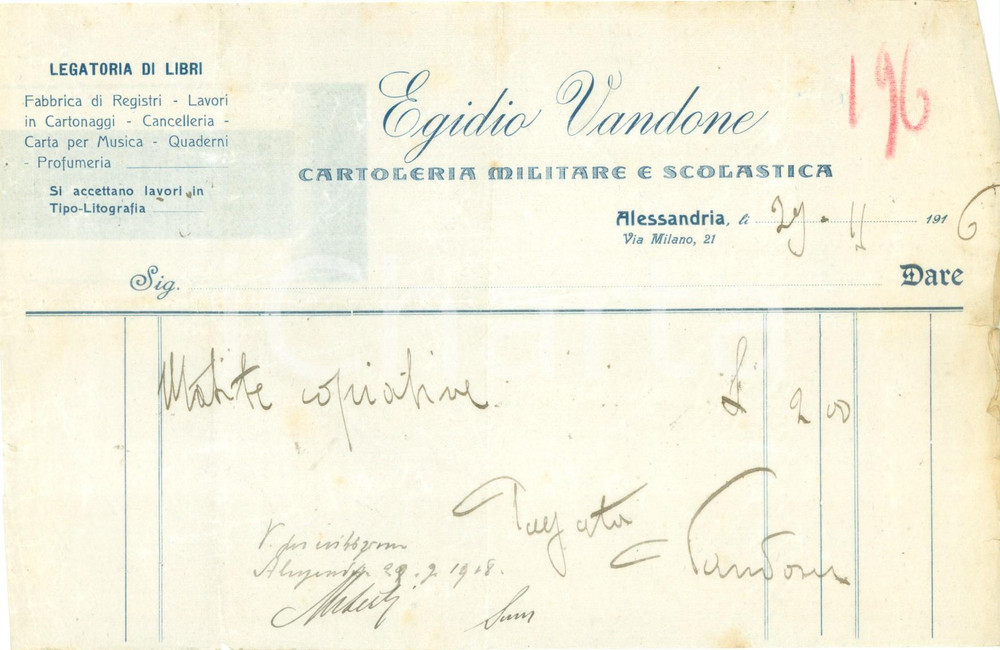 LEGATORIA DI LIBRI
Fabbrica di Registri - Lavori
in Cartonaggi - Cancelleria -
Carta per Musica - Quaderni
- Profumeria
Si accettano lavori in
Tipo-Litografia
196
Egidio Vandone
CARTOLERIA MILITARE E SCOLASTICA
Alessandria, li 29 - 11 1916
Via Milano, 21
Sig.
Dare
Matite copiative £ 2 00
Pagato
Vandone
V.
Alessandria 29.2.1918.